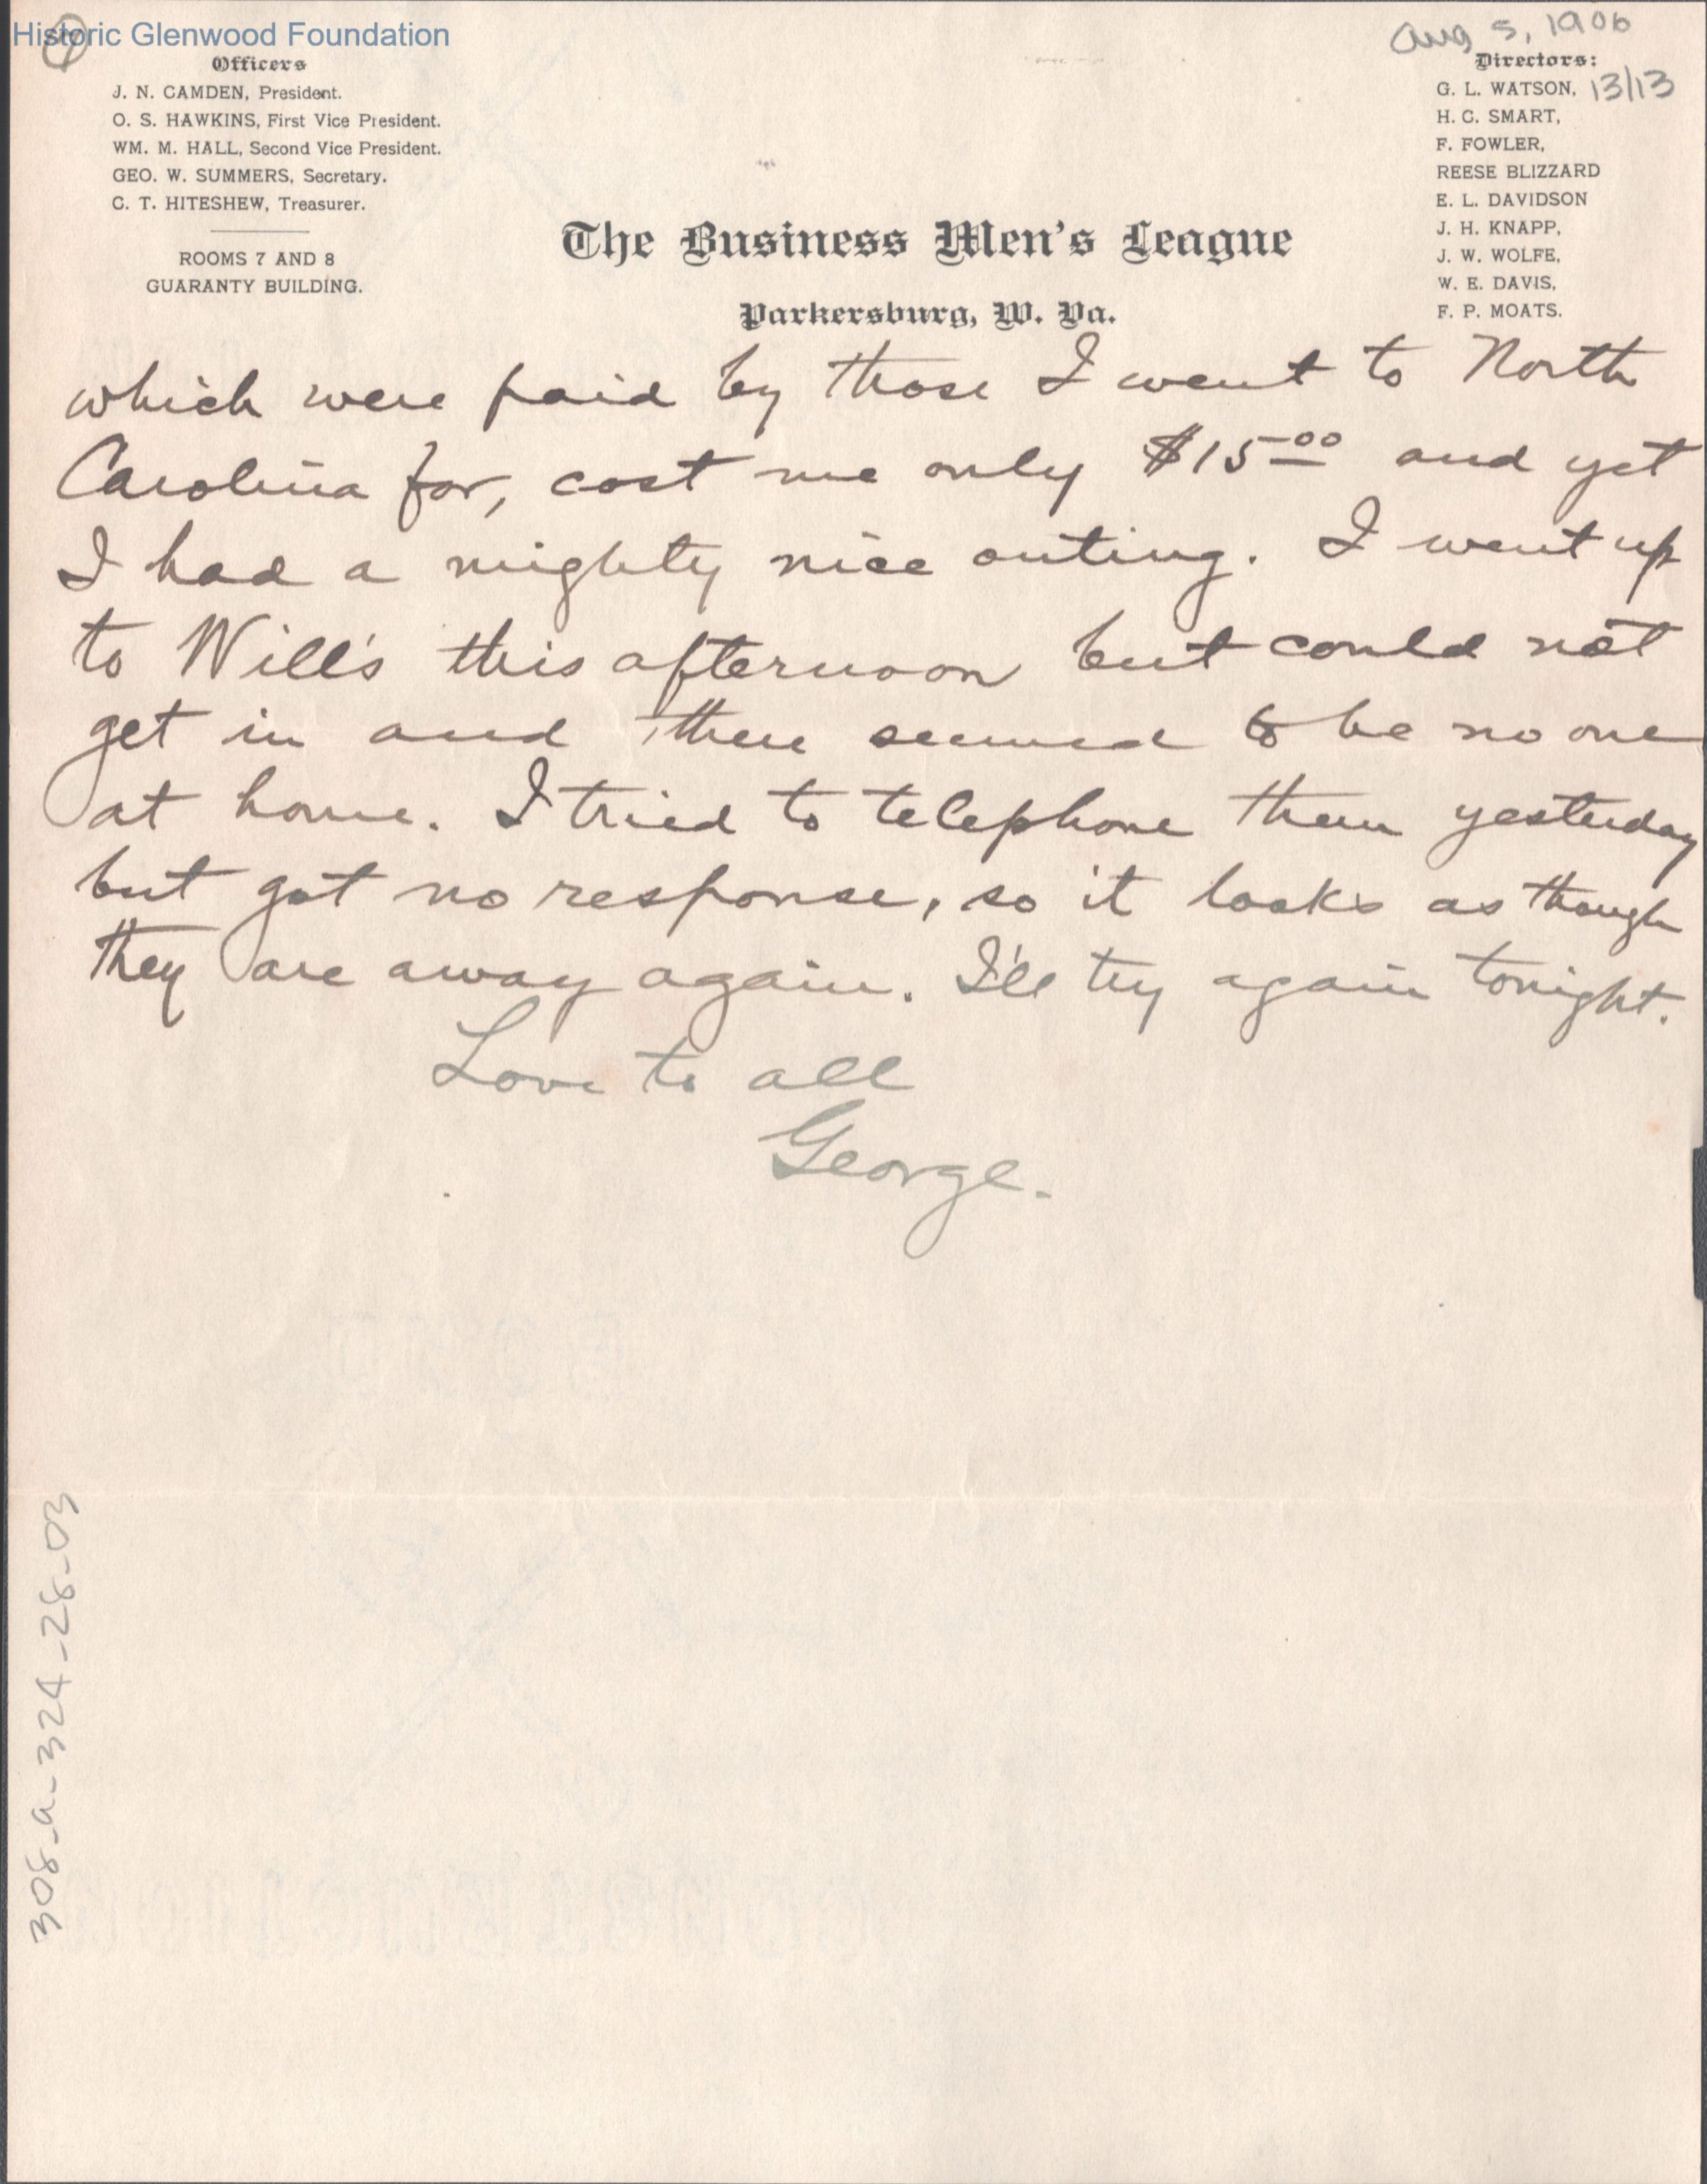 Historic Glenwood Foundation
Aug 5, 1906
13/13
Officers
J. N. CAMDEN, President.
O. S. HAWKINS, First Vice President.
WM. M. HALL, Second Vice President.
GEO. W. SUMMERS, Secretary.
C. T. HITESHEW, Treasurer.
ROOMS 7 AND 8
GUARANTY BUILDING.
Directors:
G. L. WATSON,
H. C. SMART,
F. FOWLER,
REESE BLIZZARD
E. L. DAVIDSON
J. H. KNAPP,
J. W. WOLFE,
W. E. DAVIS,
F. P. MOATS.
The Business Men's League
Parkersburg, W. Va.
which were paid by those I went to North
Carolina for, cost me only $15.00 and yet
I had a mighty nice outing. I went up
to Will's this afternoon but could not
get in and there seemed to be no one
at home. I tried to telephone them yesterday
but got no response, so it looks as though
they are away again. I'll try again tonight.
Love to all
George.
308-a-324-28-03